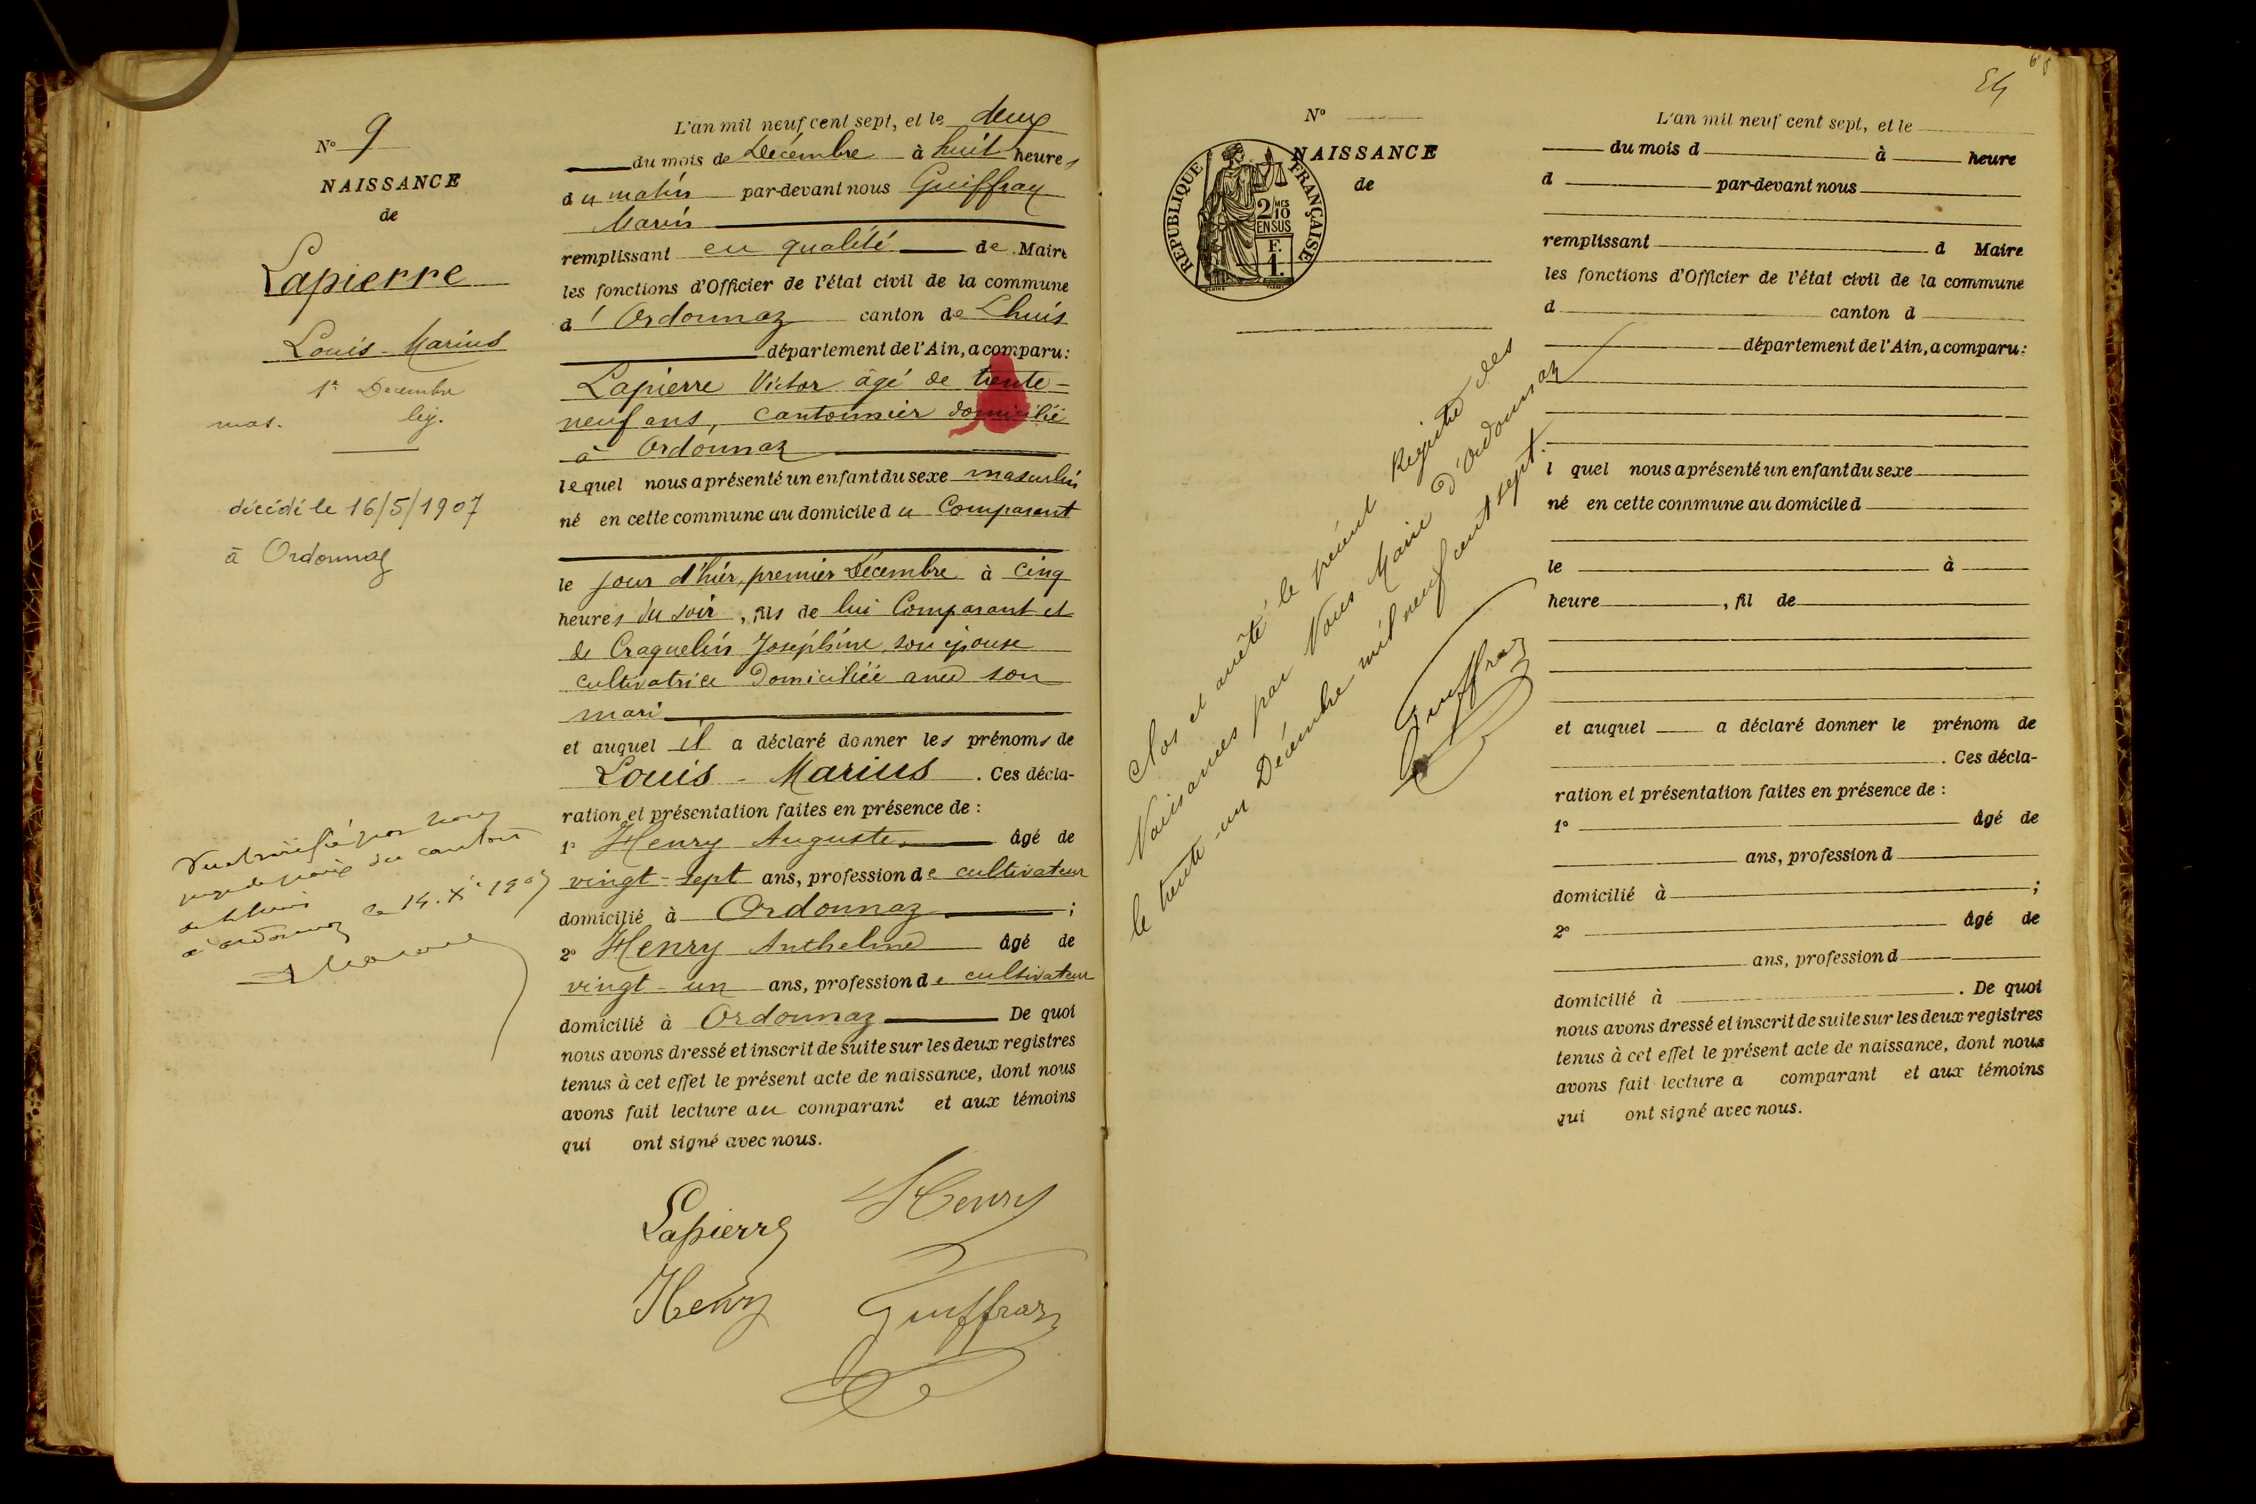 N° 9
NAISSANCE
de
Lapierre
Louis-Marius
1er Décembre
mas. lég.
décédé le 16/5/1907
à Ordonnaz
Vu et vérifié par nous
juge de paix du canton
de Lhuis
à Ordonnaz le 14. Xe 190
L'an mil neuf cent sept, et le deux
du mois de Décembre à huit heures
du matin par-devant nous Guiffray
Marin
remplissant en qualité de Maire
les fonctions d'Officier de l'état civil de la commune
d'Ordonnaz canton de Lhuis
département de l'Ain, a comparu:
Lapierre Victor âgé de trente-
neuf ans, cantonnier domicilié
à Ordonnaz
lequel nous a présenté un enfant du sexe masculin
né en cette commune au domicile du Comparant
le jour d'hier, premier Décembre à cinq
heures du soir, fils de lui Comparant et
de Craquelin Joséphine, son épouse
cultivatrice domiciliée avec son
mari
et auquel il a déclaré donner les prénoms de
Louis-Marius. Ces décla-
ration et présentation faites en présence de :
1° Henry Auguste, âgé de
vingt-sept ans, profession de cultivateur
domicilié à Ordonnaz ;
2° Henry Anthelme âgé de
vingt-un ans, profession de cultivateur
domicilié à Ordonnaz De quoi
nous avons dressé et inscrit de suite sur les deux registres
tenus à cet effet le présent acte de naissance, dont nous
avons fait lecture au comparant et aux témoins
qui ont signé avec nous.
Lapierre Henry
Henry Guiffray
54
N°
NAISSANCE
de
REPUBLIQUE FRANÇAISE
2/10
EN SUS
F.
1.
Clos et arrêté le présent Registre des
Naissances par Nous Maire d'Ordonnaz
le trente-un Décembre mil neuf cent sept.
Guiffray
L'an mil neuf cent sept, et le
du mois d à heure
d par-devant nous
remplissant d Maire
les fonctions d'Officier de l'état civil de la commune
d canton d
département de l'Ain, a comparu:
l quel nous a présenté un enfant du sexe
né en cette commune au domicile d
le à
heure , fil de
et auquel a déclaré donner le prénom de
. Ces décla-
ration et présentation faites en présence de :
1° âgé de
ans, profession d
domicilié à ;
2° âgé de
ans, profession d
domicilié à . De quoi
nous avons dressé et inscrit de suite sur les deux registres
tenus à cet effet le présent acte de naissance, dont nous
avons fait lecture a comparant et aux témoins
qui ont signé avec nous.